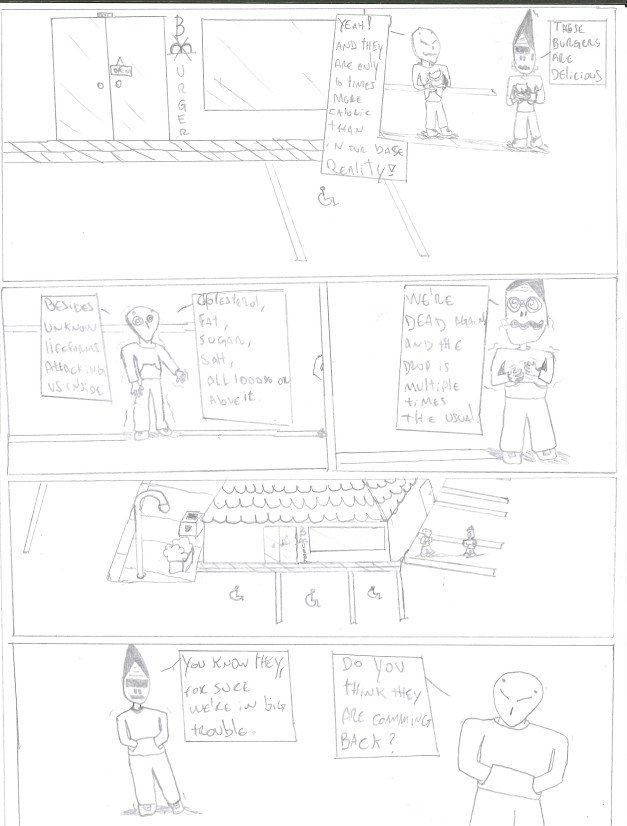 OPEN
B
U
R
G
E
R
YEAH!
AND THEY
ARE ONLY
10 TIMES
MORE
CALORIC
THAN
IN OUR BASE
REALITY!
THESE
BURGERS
ARE
DELICIOUS
BESIDES
UNKNOW
LIFEFORMS
ATTACKING
US INSIDE
CHOLESTEROL,
FAT,
SUGAR,
SALT,
ALL 1000% OR
ABOVE IT.
WE'RE
DEAD AGAIN
AND THE
DROP IS
MULTIPLE
TIMES
THE USUAL.
YOU KNOW THEY,
FOR SURE
WE'RE IN BIG
TROUBLE.
DO YOU
THINK THEY
ARE COMMING
BACK?